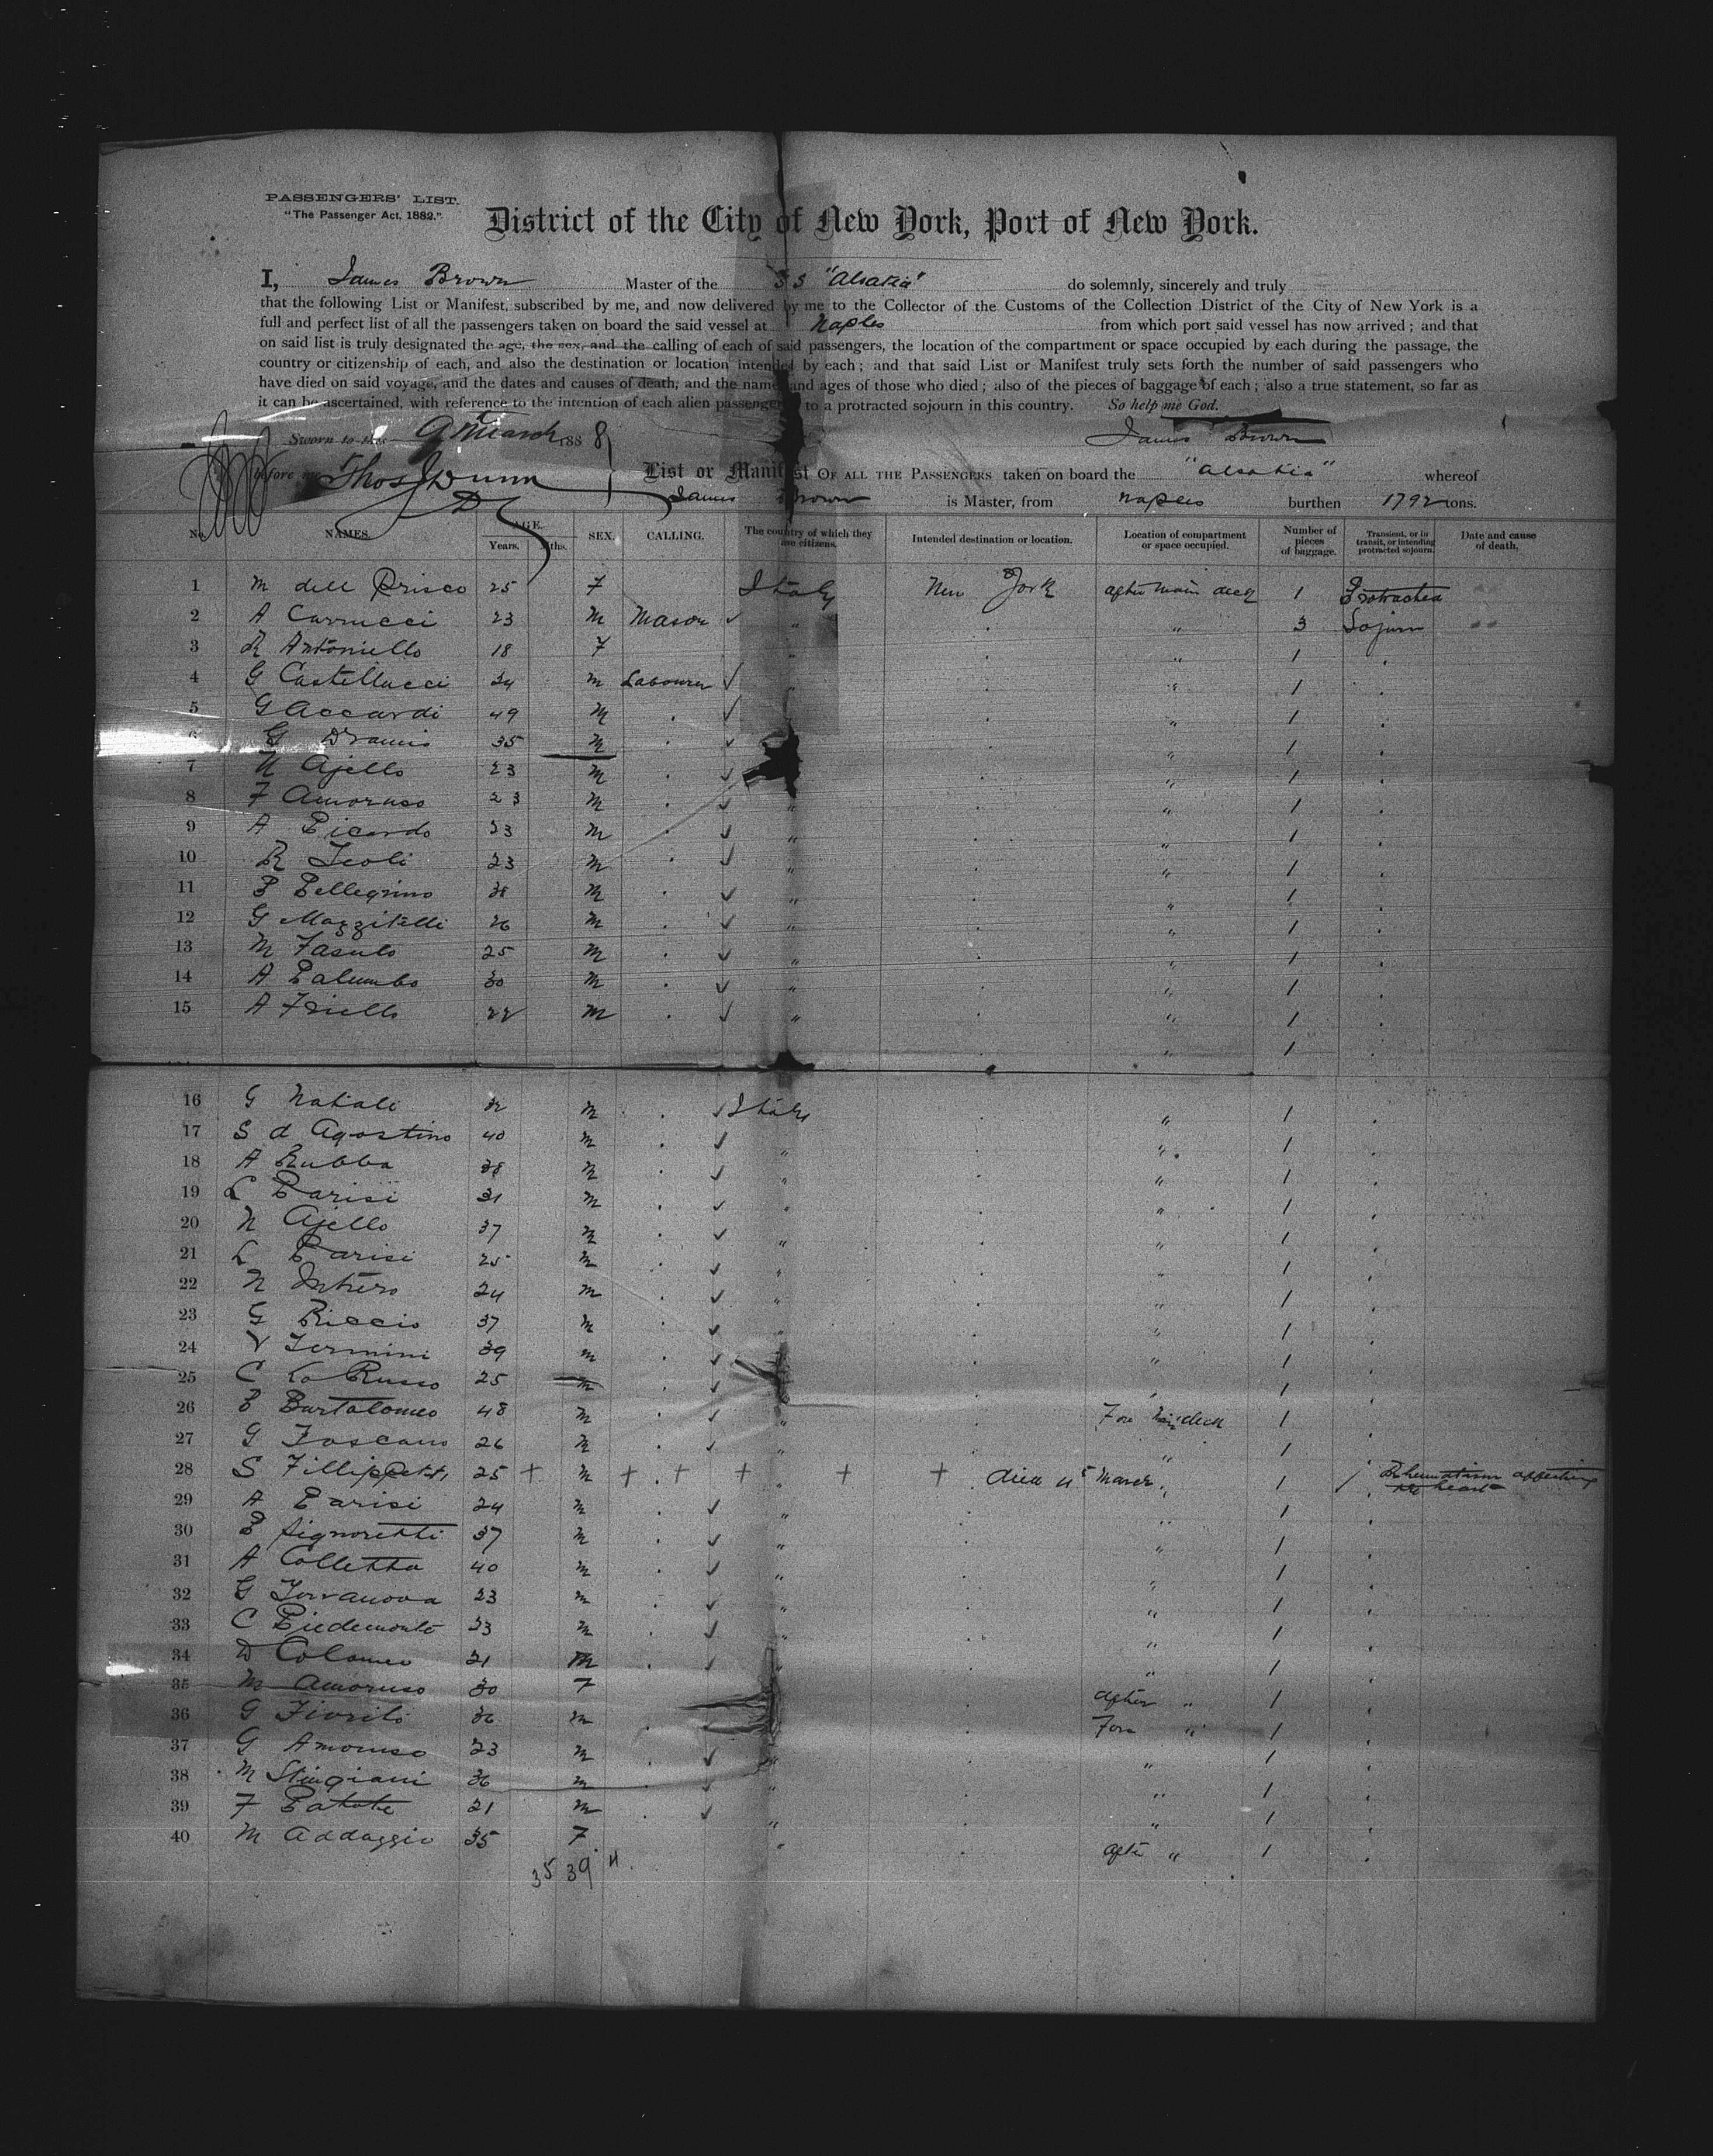 PASSENGERS' LIST.
"The Passenger Act, 1882."
District of the City of New York, Port of New York.
I, James Brown Master of the S S "Alsatia" do solemnly, sincerely and truly
that the following List or Manifest, subscribed by me, and now delivered by me to the Collector of the Customs of the Collection District of the City of New York is a
full and perfect list of all the passengers taken on board the said vessel at Naples from which port said vessel has now arrived; and that
on said list is truly designated the age, the sex, and the calling of each of said passengers, the location of the compartment or space occupied by each during the passage, the
country or citizenship of each, and also the destination or location intended by each; and that said List or Manifest truly sets forth the number of said passengers who
have died on said voyage, and the dates and causes of death, and the names and ages of those who died; also of the pieces of baggage of each; also a true statement, so far as
it can be ascertained, with reference to the intention of each alien passenger to a protracted sojourn in this country. So help me God.
Sworn to this 9th March 1888 James Brown
before me Thos J Dunn List or Manifest OF ALL THE PASSENGERS taken on board the "Alsatia" whereof
James Brown is Master, from Naples burthen 1792 tons.
No. NAMES. AGE. Years. Mths. SEX. CALLING. The country of which they are citizens. Intended destination or location. Location of compartment or space occupied. Number of pieces of baggage. Transient, or in transit, or intending protracted sojourn. Date and cause of death.
1 M dell Prisco 25 F Italy New York after main deck 1 Protracted
2 A Carrucci 23 M Mason ✓ " . " 3 Sojurn
3 R Antoniello 18 F " . " 1 .
4 G Castellucci 24 M Labourer ✓ " . " 1 .
5 G Accardi 49 M . ✓ . " 1 .
6 G Dramis 35 M . ✓ . " 1 .
7 N Ajello 23 M . ✓ . " 1 .
8 F Amoruso 23 M . ✓ " . " 1 .
9 A Picardo 23 M . ✓ " . " 1 .
10 R Ieoli 23 M . ✓ " . " 1 .
11 P Pellegrino 38 M . ✓ " . " 1 .
12 G Mazzitelli 26 M . ✓ " . " 1 .
13 M Fasulo 25 M . ✓ " . " 1 .
14 A Palumbo 30 M . ✓ " . " 1 .
15 A Friello 22 M . ✓ " . " 1 .
16 G Natali 32 M . ✓ Italy . " 1 .
17 S d Agostino 40 M . ✓ " . " 1 .
18 A Rubba 38 M . ✓ " . " 1 .
19 L Parisi 31 M . ✓ " . " 1 .
20 N Ajello 37 M . ✓ " . " 1 .
21 L Parisi 25 M . ✓ " . " 1 .
22 N Intrero 24 M . ✓ " . " 1 .
23 G Riccio 37 M . ✓ " . " 1 .
24 V Termini 39 M . ✓ . " 1 .
25 C Lo Russo 25 M . ✓ . " 1 .
26 P Bartolomeo 48 M . ✓ " . Fore Main deck 1 .
27 G Toscano 26 M . ✓ " . " 1 .
28 S Fillippetti 25 + M + . + + " + + . died 4th March " 1 / . Rheumatism affecting the heart
29 A Parisi 24 M . ✓ " . " 1 .
30 P Signoretti 37 M . ✓ " . " 1 .
31 A Colletta 40 M . ✓ " . " 1 .
32 G Terranova 23 M . ✓ " . " 1 .
33 C Piedemonte 23 M . ✓ " . " 1 .
34 D Colomeo 21 M . ✓ " . " 1 .
35 M Amoruso 30 F . after " 1 .
36 G Fiorito 36 M . . Fore " 1 .
37 G Amoruso 23 M . ✓ " . " 1 .
38 M Stingiani 36 M . ✓ " . " 1 .
39 F Patote 21 M . ✓ " . " 1 .
40 M Addaggio 35 F " . after " 1 .
35 39 4